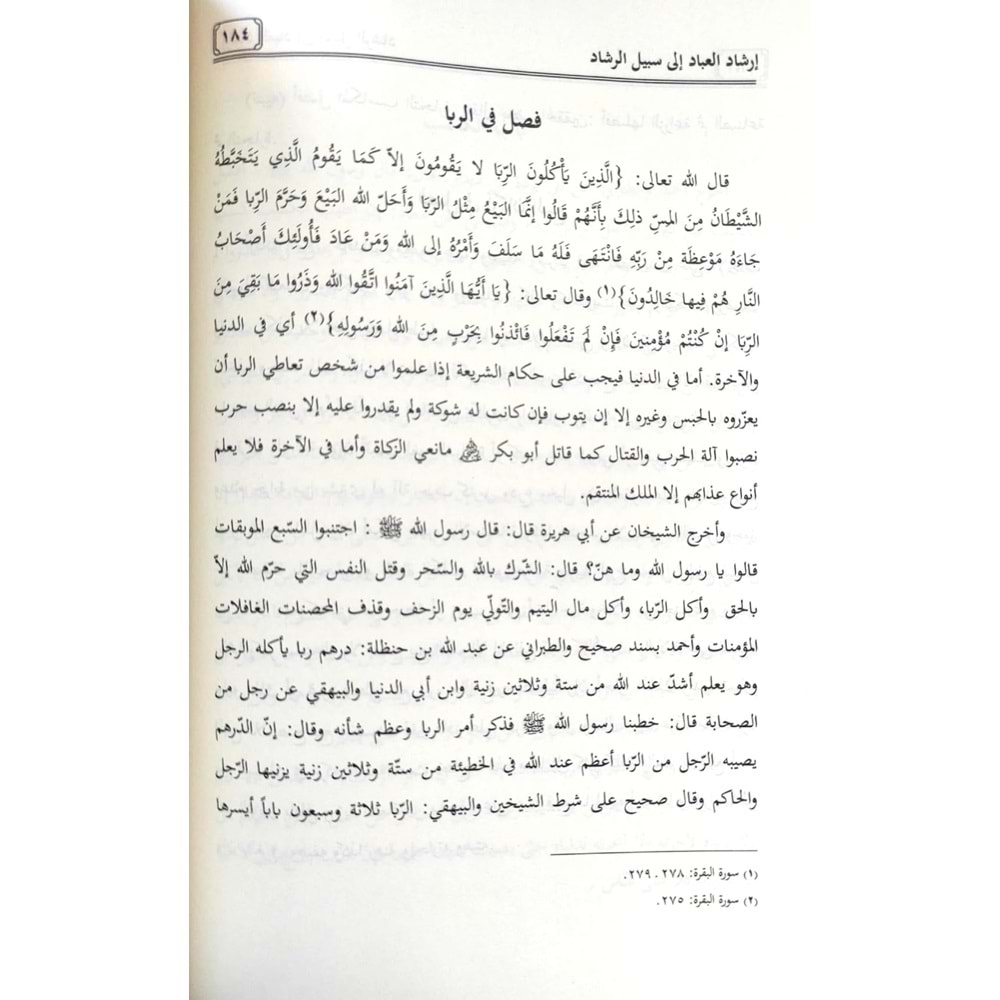 ١٨٤
إرشاد العباد إلى سبيل الرشاد
فصل في الربا
قال الله تعالى: {الَّذِينَ يَأْكُلُونَ الرِّبَا لا يَقُومُونَ إلاّ كَمَا يَقُومُ الَّذِي يَتَخَبَّطُهُ
الشَّيْطَانُ مِنَ المسِّ ذلِكَ بِأَنَّهُمْ قَالُوا إنَّمَا البَيْعُ مِثْلُ الرِّبَا وَأَحَلّ الله البَيْعَ وَحَرَّمَ الرِّبا فَمَنْ
جَاءَهُ مَوْعِظَة مِنْ رَبِّهِ فَانْتَهَى فَلَهُ مَا سَلَفَ وَأَمْرُهُ إلى الله وَمَنْ عَادَ فَأُولَئِكَ أَصْحَابُ
النَّارِ هُمْ فِيها خَالِدُونَ}(١) وقال تعالى: {يَا أَيُّهَا الَّذِينَ آمَنُوا اتَّقُوا الله وَذَرُوا مَا بَقِيَ مِنَ
الرِّبَا إنْ كُنْتُمْ مُؤْمِنينَ فَإِنْ لَمْ تَفْعَلُوا فَائْذَنُوا بِحَرْبٍ مِنَ الله وَرَسُولِهِ}(٢) أي في الدنيا
والآخرة. أما في الدنيا فيجب على حكام الشريعة إذا علموا من شخص تعاطي الربا أن
يعزّروه بالحبس وغيره إلا إن يتوب فإن كانت له شوكة ولم يقدروا عليه إلا بنصب حرب
نصبوا آلة الحرب والقتال كما قاتل أبو بكر رضي الله عنه مانعي الزكاة وأما في الآخرة فلا يعلم
أنواع عذابهم إلا الملك المنتقم.
وأخرج الشيخان عن أبي هريرة قال: قال رسول الله ﷺ : اجتنبوا السّبع الموبقات
قالوا يا رسول الله وما هنّ؟ قال: الشّرك بالله والسّحر وقتل النفس التي حرّم الله إلاّ
بالحق وأكل الرّبا، وأكل مال اليتيم والتّولّي يوم الزحف وقذف المحصنات الغافلات
المؤمنات وأحمد بسند صحيح والطبراني عن عبد الله بن حنظلة: درهم ربا يأكله الرجل
وهو يعلم أشدّ عند الله من ستة وثلاثين زنية وابن أبي الدنيا والبيهقي عن رجل من
الصحابة قال: خطبنا رسول الله ﷺ فذكر أمر الربا وعظم شأنه وقال: إنّ الدّرهم
يصيبه الرّجل من الرّبا أعظم عند الله في الخطيئة من ستّة وثلاثين زنية يزنيها الرّجل
والحاكم وقال صحيح على شرط الشيخين والبيهقي: الرّبا ثلاثة وسبعون باباً أيسرها
(١) سورة البقرة: ٢٧٨، ٢٧٩.
(٢) سورة البقرة: ٢٧٥.